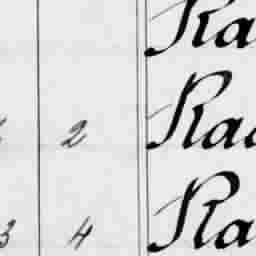 Ra
2 Ra
3 4 Ra